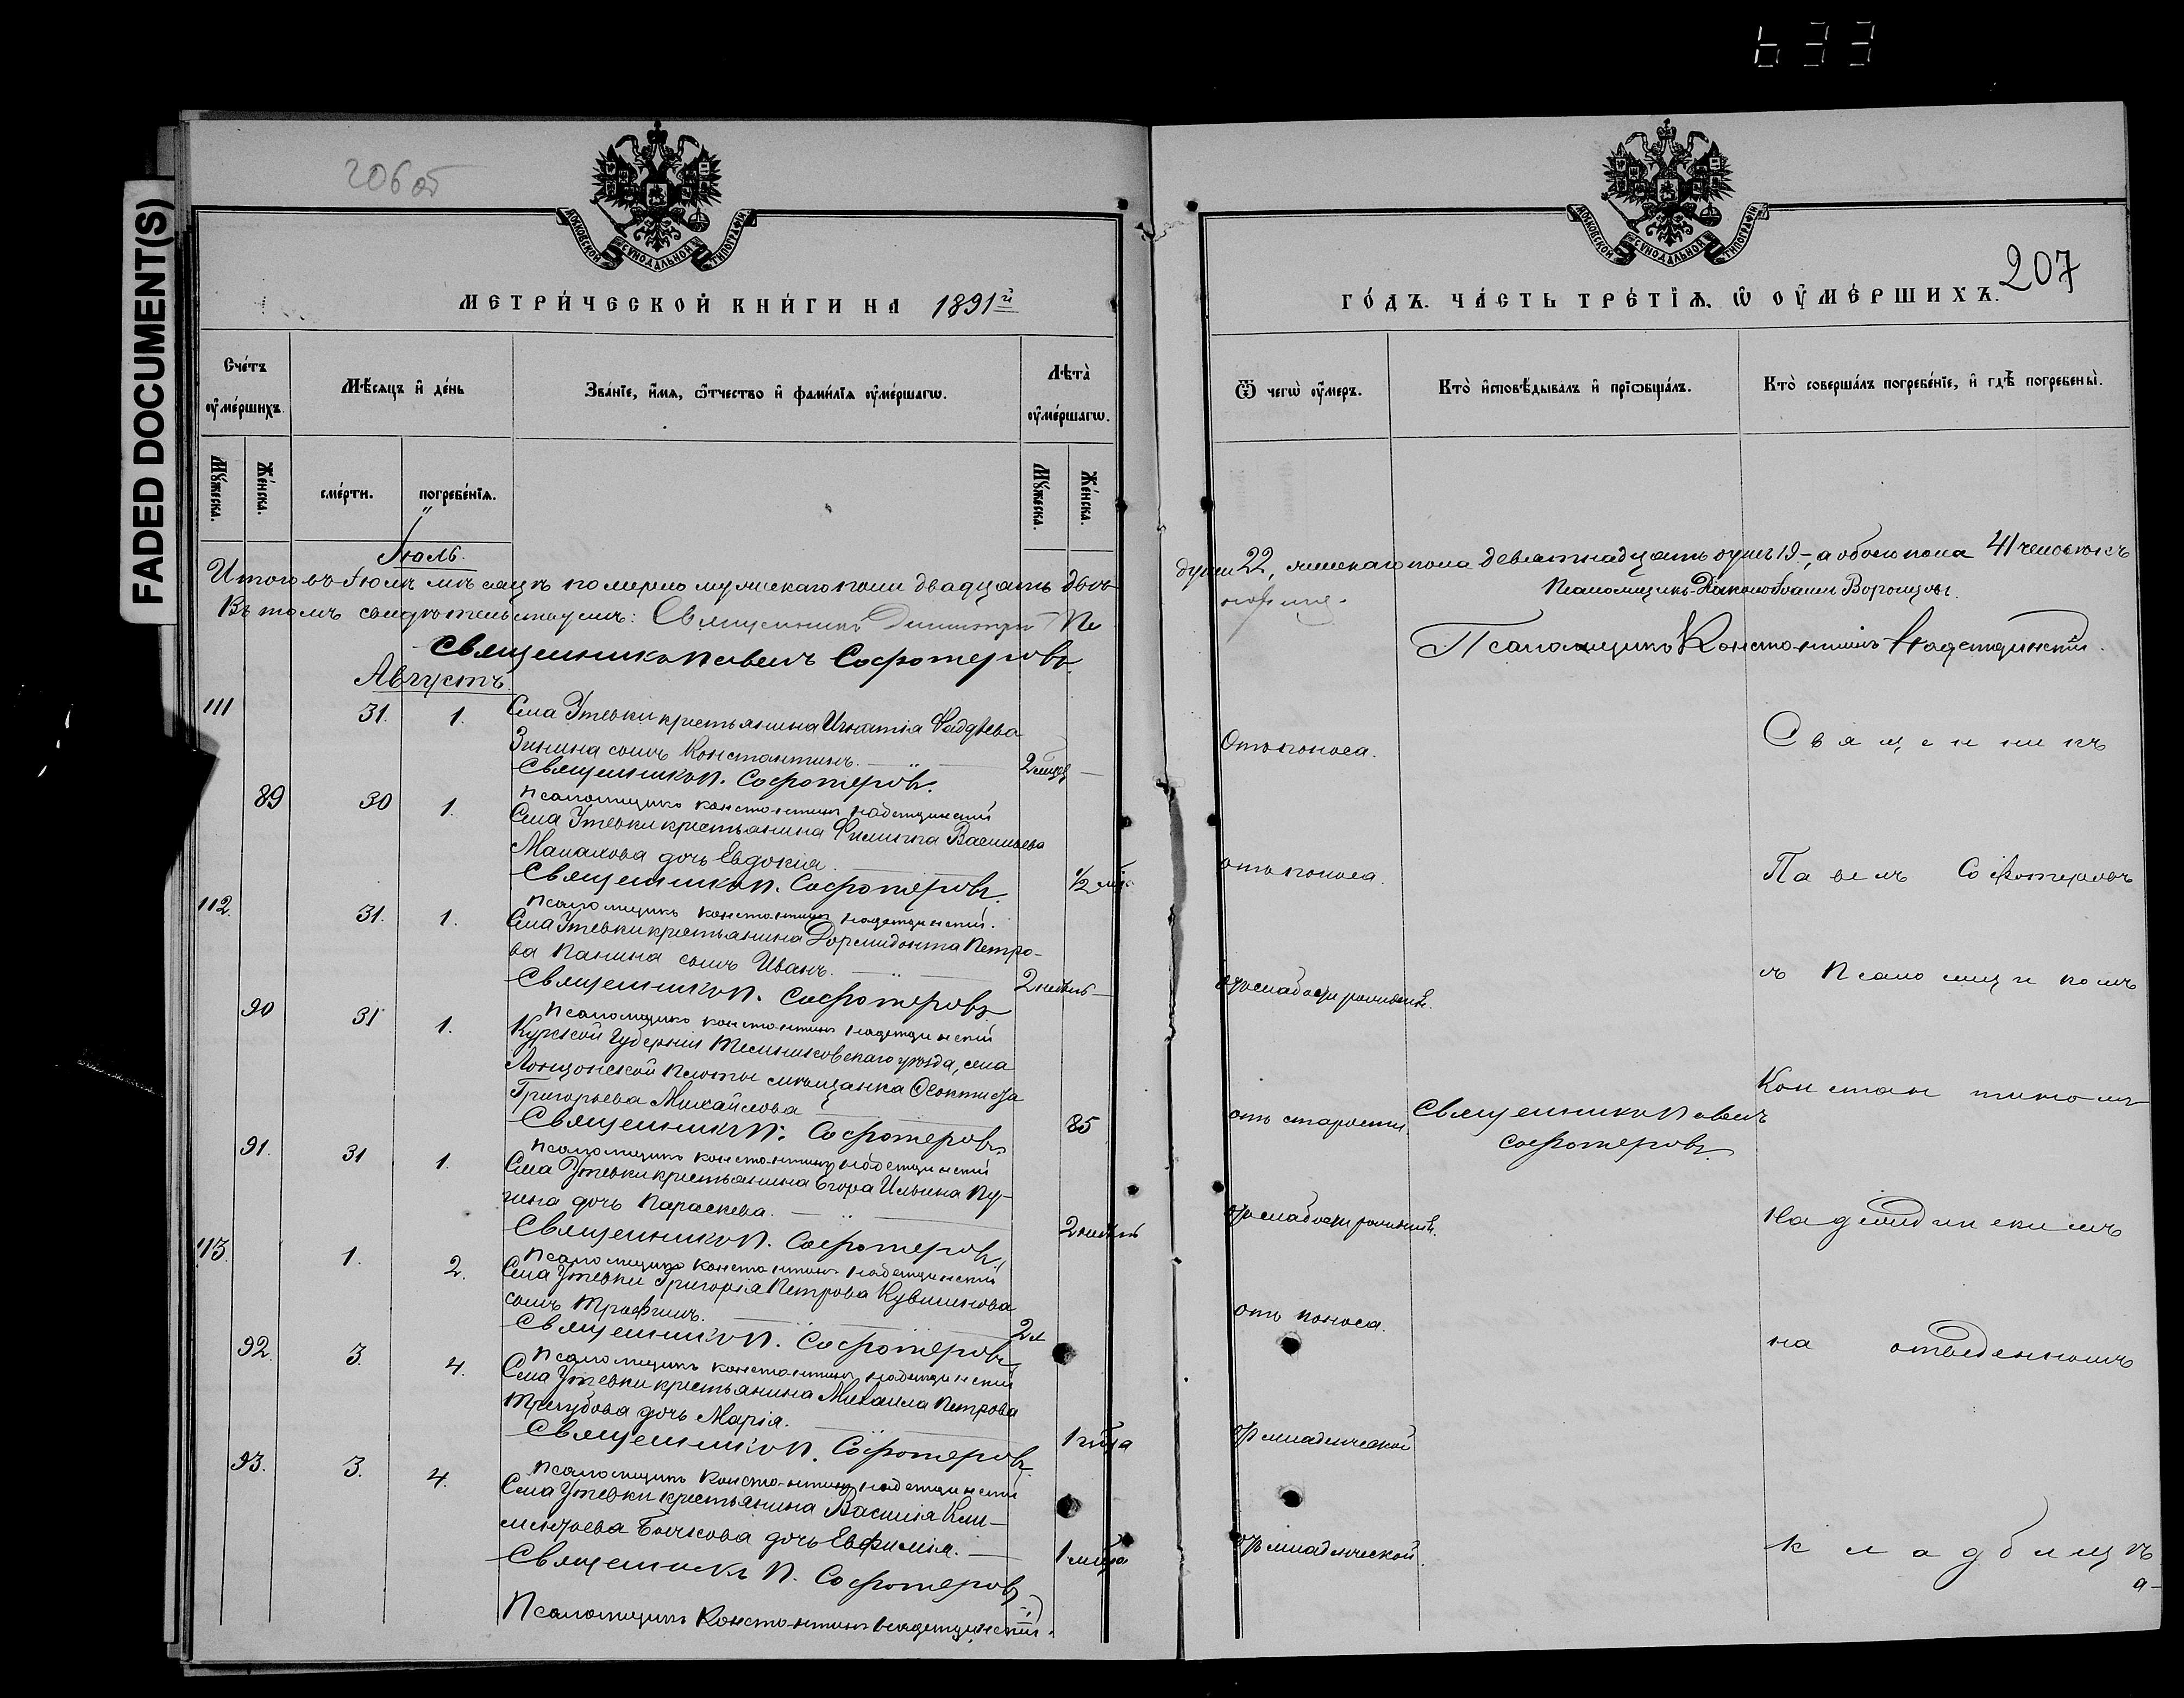 633
FADED DOCUMENT(S)
206 об
МОСКОВСКОЙ СѴНОДАЛЬНОЙ ТИПОГРАФІИ
МЕТРИ́ЧЕСКОЙ КНИ́ГИ НА 1891й
Сче́тъ ᲂу҆ме́ршихъ.
Мѣ́сяцъ и҆ де́нь
Зва́нїе, и҆́мя, ѻ҆́тчество и҆ фами́лїя ᲂу҆ме́ршагѡ.
Лѣ́та ᲂу҆ме́ршагѡ.
Мꙋ́жеска.
Же́нска.
сме́рти.
погребе́нїѧ.
Мꙋ́жеска.
Же́нска.
Іюль.
Итого въ Іюлѣ мѣсяцѣ померло мужескаго пола двадцать двѣ
Въ томъ свидѣтельствуемъ: Священникъ Димитрій
Священникъ Павелъ Софотеровъ.
Августъ.
111 31. 1. Села Утевки крестьянина Игнатія Фадѣева
Зинина сынъ Константинъ. 2 мѣсц
Священникъ П. Софотеровъ.
Псаломщикъ Константинъ Надеждинскій
89 30 1. Села Утевки крестьянина Филиппа Васильева
Макакова дочь Евдокія. 1/2 мѣс
Священникъ П. Софотеровъ.
Псаломщикъ Константинъ Надеждинскій.
112. 31. 1. Села Утевки крестьянина Дормидонта Петро-
ва Панина сынъ Иванъ. 2 недѣль
Священникъ П. Софотеровъ
Псаломщикъ Константинъ Надеждинскій
90 31 1. Курской Губерніи уѣзда, села
мѣщанка Ѳеоктиста
Григорьева Михайлова 85
Священникъ П. Софотеровъ
Псаломщикъ Константинъ Надеждинскій
91. 31 1. Села Утевки крестьянина Егора Ильина Пу-
дочь Параскева. 2 недѣль
Священникъ П. Софотеровъ
Псаломщикъ Константинъ Надеждинскій
113. 1. 2. Села Утевки Григорія Петрова Кувшинова
сынъ Трофимъ. 2 л
Священникъ П. Софотеровъ
Псаломщикъ Константинъ Надеждинскій
92. 3. 4. Села Утевки крестьянина Михаила Петрова
Трегубова дочь Марія. 1 года
Священникъ П. Софотеровъ.
Псаломщикъ Константинъ Надеждинскій
93. 3. 4. Села Утевки крестьянина Василія Кли-
ментьева Бычкова дочь Евфимія. 1 мѣсца
Священникъ П. Софотеровъ
Псаломщикъ Константинъ Надеждинскій.
МОСКОВСКОЙ СѴНОДАЛЬНОЙ ТИПОГРАФІИ
207
ГО́ДЪ. ЧА́СТЬ ТРЕ́ТЇѦ, Ѡ҆ ОУ҆МЕ́РШИХЪ.
Ѿ чегѡ̀ ᲂу҆́меръ.
Кто̀ и҆сповѣ́дывалъ и҆ прїѻбща́лъ.
Кто̀ соверша́лъ погребе́нїе, и҆ гдѣ̀ погребены̀.
души 22, женскаго пола девятнадцать душъ 19-, а обоего пола 41 человѣкъ
Псаломщикъ-Діаконъ Іоаннъ Воронцовъ.
Псаломщикъ Константинъ Надеждинскій.
Отъ поноса. Священникъ
отъ поноса. Павелъ Софотеровъ
отъ слабости рожденія. съ Псаломщикомъ
отъ старости. Священникъ Павелъ Константиномъ
Софотеровъ.
отъ слабости рожденія. Надеждинскимъ
отъ поноса. на отведенномъ
отъ младенческой
отъ младенческой. кладбищѣ